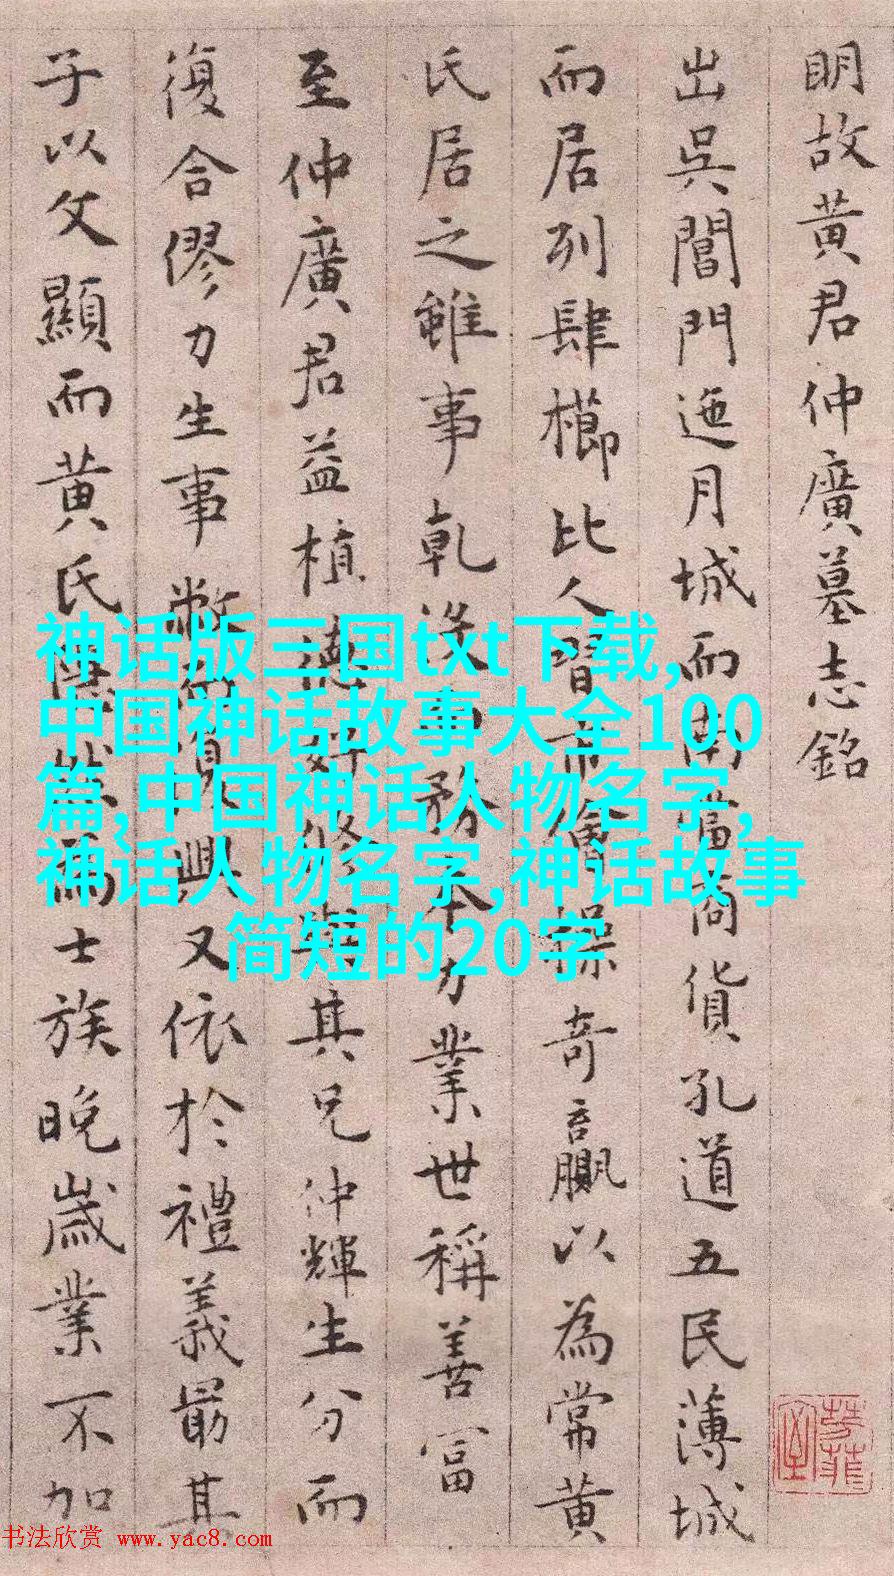 明故黄君仲廣墓志銘
出吳閶門迤月城而南當商貨孔道五民薄城
而居列肆櫛比人習市儈操奇贏以為常黄
氏居之雖事乾没而務本力業世稱善富
至仲廣君益植德好修與其兄仲輝生分而
復合僇力生事幣貲興又依於禮義最其
子以文顯而黄氏士族晚歲業不加
神话版三国txt下载,
中国神话故事大全100
篇,中国神话人物名字,
神话人物名字,神话故事
简短的20字
书法欣赏 www.yac8.com